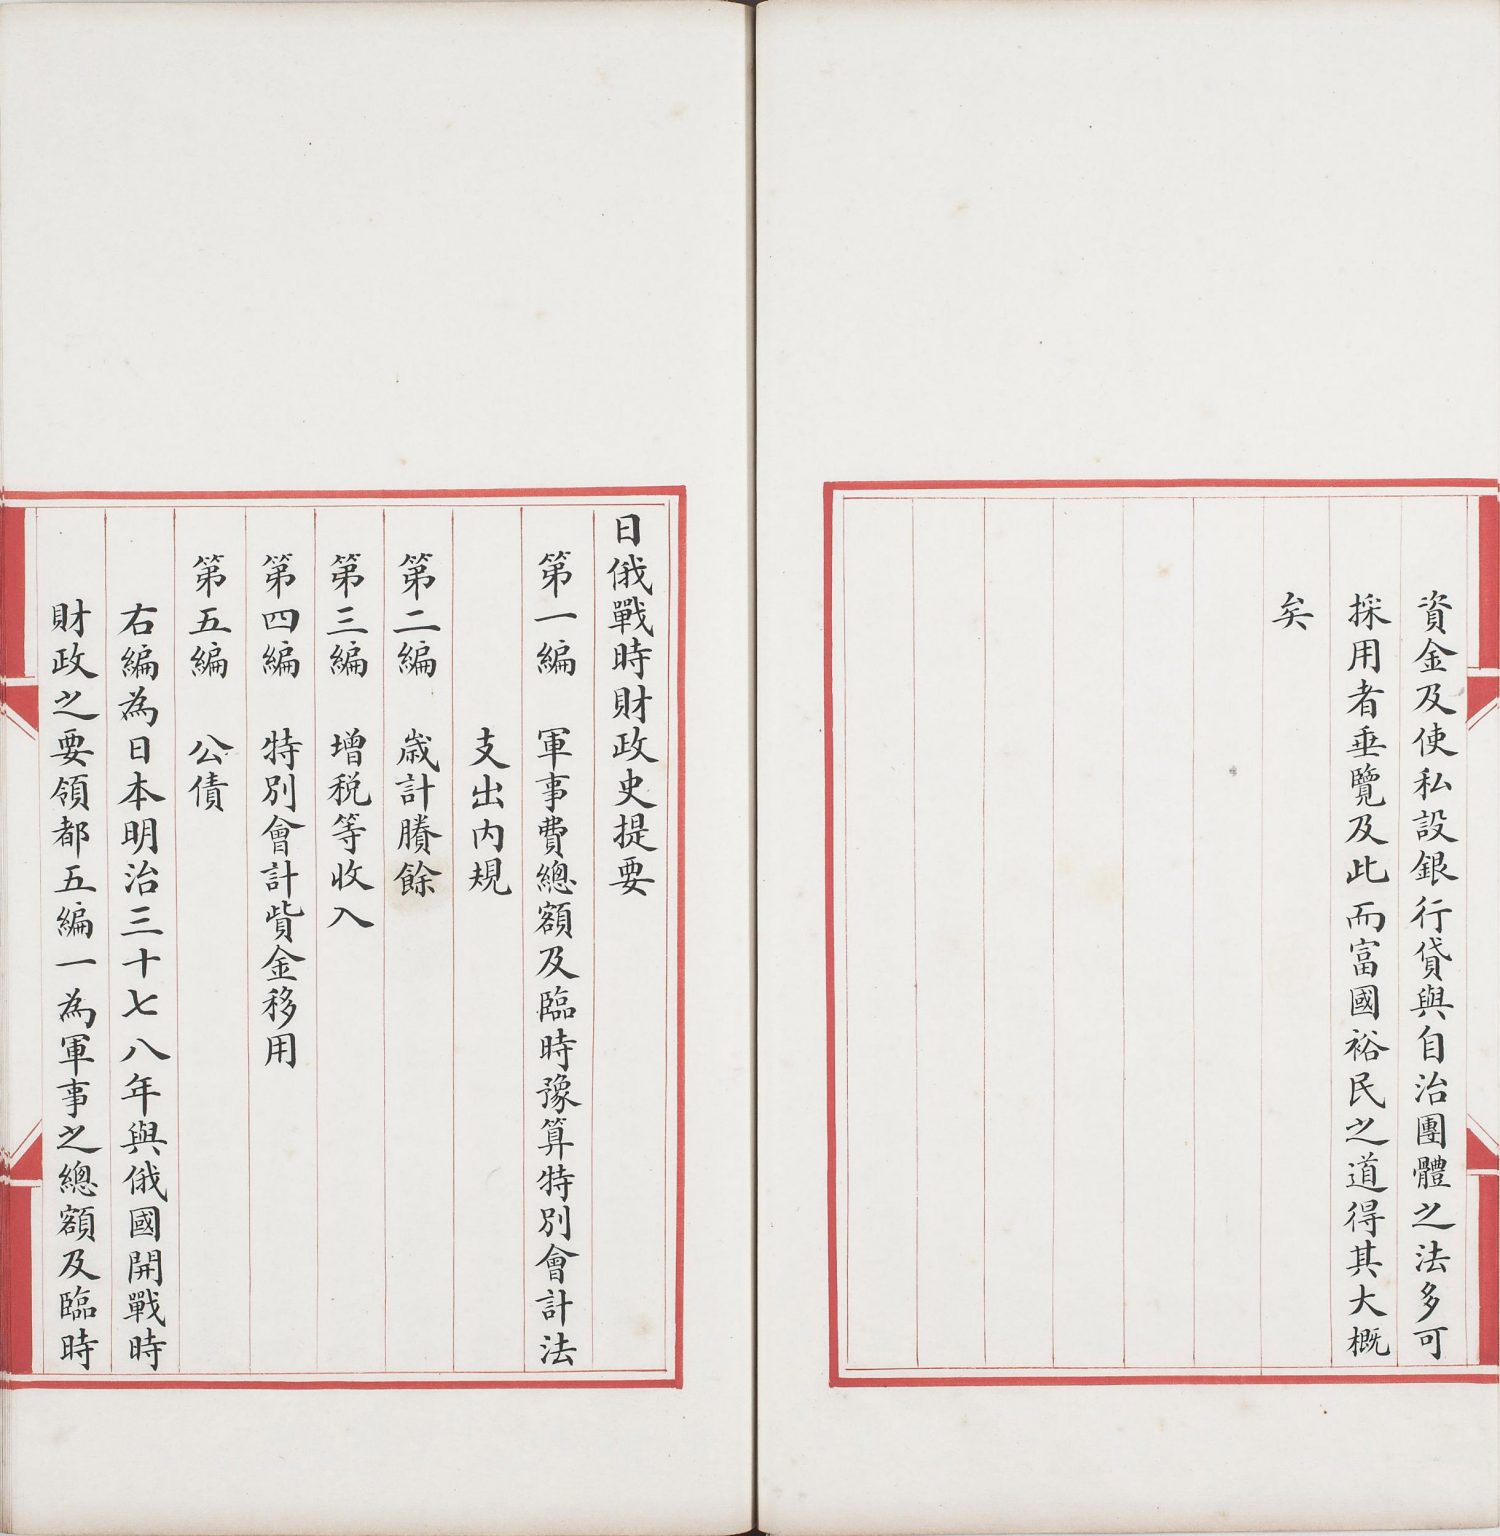 資金及使私設銀行貸與自治團體之法多可
採用者垂覽及此而富國裕民之道得其大概
矣
日俄戰時財政史提要
第一編　軍事費總額及臨時豫算特別會計法
支出内規
第二編　歳計賸餘
第三編　增税等收入
第四編　特別會計貲金移用
第五編　公債
右編為日本明治三十七八年與俄國開戰時
財政之要領都五編一為軍事之總額及臨時